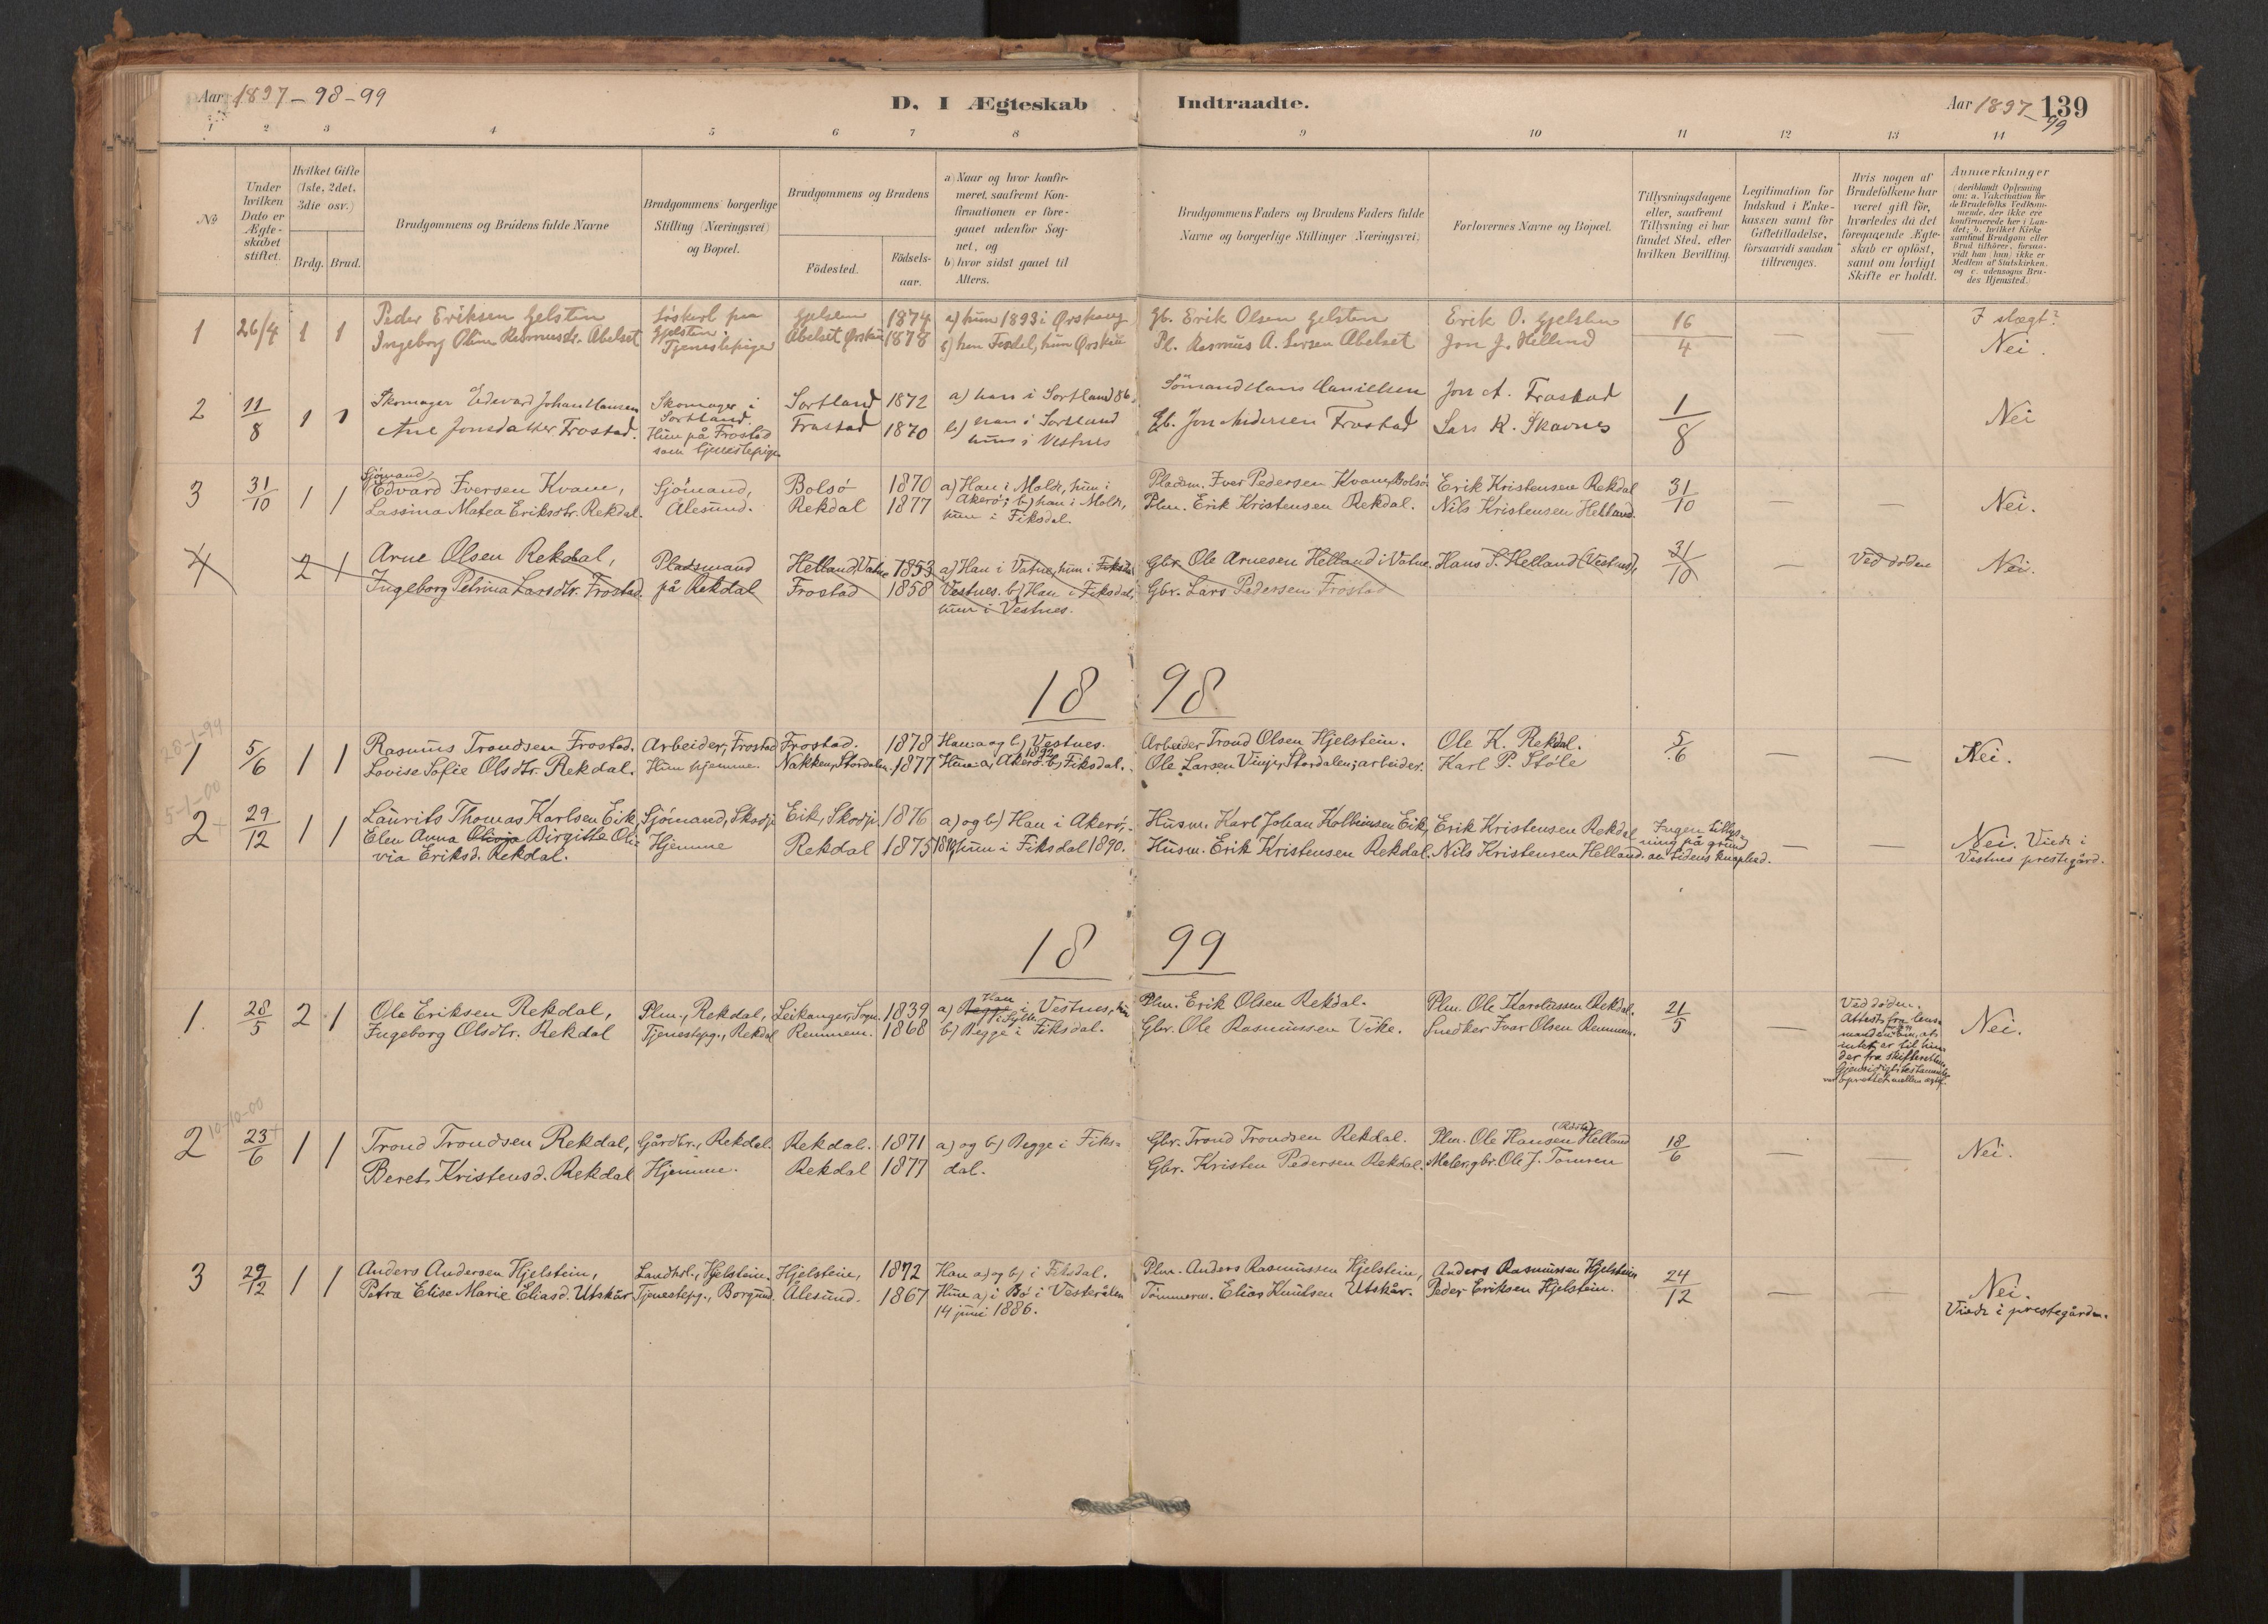 Aar 1897-98-99
D. I Ægteskab Indtraadte.
Aar 1897-99 139
1 2 3 4 5 6 7 8 9 10 11 12 13 14
No
Under hvilken Dato er Ægteskabet stiftet.
Hvilket Gifte (1ste, 2det, 3die osv.)
Brdg. Brud.
Brudgommens og Brudens fulde Navne
Brudgommens borgerlige Stilling (Næringsvei) og Bopæl.
Brudgommens og Brudens
Födested.
Födsels-aar.
a) Naar og hvor konfirmeret, saafremt Konfirmationen er foregaaet udenfor Sognet, og
b) hvor sidst gaaet til Alters.
Brudgommens Faders og Brudens Faders fulde Navne og borgerlige Stillinger (Næringsvei)
Forlovernes Navne og Bopæl.
Tillysningsdagene eller, saafremt Tillysning ei har fundet Sted, efter hvilken Bevilling.
Legitimation for Indskud i Enkekassen samt for Giftetilladelse, forsaavidt saadan tiltrænges.
Hvis nogen af Brudefolkene har været gift för, hvorledes da det foregaaende Ægteskab er oplöst, samt om lovligt Skifte er holdt.
Anmærkninger
(deriblandt Oplysning om: a. Vakcination for de Brudefolks Vedkommende, der ikke ere konfirmerede her i Landet; b. hvilket Kirkesamfund Brudgom eller Brud tilhörer, forsaavidt han (hun) ikke er Medlem af Statskirken, og c. udensogns Brudes Hjemsted.)
1 26/4 1 1 Peder Eriksen Gelsten Gjelsten 1874 a) hun 1893 i Ørskoug Gb. Erik Olsen Gelsten Erik O. Gjelsten 16/4 — — I slægt?
Ingeborg Oline Rasmusdr. Abelset Gjelsten. Tjenestepige Abelset Ørskou 1878 Pl. Rasmus A. Abelset Jon J. Helland Nei.
2 11/8 1 1 Skomager Edevard Johan Hansen Skomager i Sortland. Sortland 1872 a) han i Sortland 86. Sömand Hans Danielsen Jon A. Frostad 1/8 Nei
Ane Jonsdatter Frostad. Hun på Frostad som tjenestepige Frostad 1870 b) han i Sortland hun i Vestnes Gb. Jon Andersen Frostad Lars K. Skavnes
3 31/10 1 1 Sjömand Edvard Iversen Kvam, Sjömand, Ålesund. Bolsö 1870 a) Han i Molde, hun i Akerö; b) han i Molde, hun i Fiksdal. Pladsm. Iver Pedersen Kvam, Bolsö Erik Kristensen Rekdal 31/10 — — Nei.
Lassina Matea Eriksdtr. Rekdal. Rekdal 1877 Plm. Erik Kristensen Rekdal. Nils Kristensen Helland.
4 2 1 Arne Olsen Rekdal, Pladsmand på Rekdal Helland, Vatne 1853 a) Han i Vatne, hun i Fiksdal Vestnes. b) Han i Fiksdal, hun i Vestnes. Gbr. Ole Arnesen Helland i Vatne. Hans S. Helland (Vestnes), 31/10 — Ved döden Nei.
Ingeborg Petrina Larsdtr. Frostad. Frostad 1858 Gbr. Lars Pedersen Frostad
18 98
28-1-99
1 5/6 1 1 Rasmus Trondsen Frostad. Arbeider, Frostad Frostad. 1878 Han a og b) Vestnes. Arbeider Trond Olsen Hjelstein. Ole K. Rekdal. 5/6 — — Nei.
Lovise Sofie Olsdtr. Rekdal. Hun hjemme. Nakken, Stordalen. 1877 Hun a) Akerö 1892. b) Fiksdal. Ole Larsen Vinje, Stordalen; arbeider. Karl P. Stöle
5-1-00
2 29/12 1 1 Laurits Thomas Karlsen Eik, Sjömand, Skodje Eik, Skodje 1876 a) og b) Han i Akerö, Husm. Karl Johan Kolbeinsen Eik, Erik Kristensen Rekdal Ingen tillysning på grund af tidens knaphed. — — Nei. Viede i Vestnes prestegård.
Elen Anna Olivia Birgitte Olivia Eriksd. Rekdal. Hjemme Rekdal 1875 hun i Fiksdal 1890. Husm. Erik Kristensen Rekdal. Nils Kristensen Helland.
18 99
1. 28/5 2 1 Ole Eriksen Rekdal, Plm., Rekdal, Leikanger, Sogn. 1839 a) Begge Han i Vestnes, hun i Sylte Plm. Erik Olsen Rekdal. Plm. Ole Karolussen Rekdal. 21/5 — Ved döden. Attest fra lensmanden om, at intet er til hinder fra skifteretten. Gjensidigt testamente var oprettet mellem ægtef. Nei.
Ingeborg Olsdtr. Rekdal Tjenestepg., Rekdal Remmem. 1868 b) Begge i Fiksdal. Gbr. Ole Rasmussen Vike. Snedker Ivar Olsen Remmem.
10-10-00
2 23/6 1 1 Trond Trondsen Rekdal, Gårdbr., Rekdal. Rekdal. 1871 a) og b) Begge i Fiks- Gbr. Trond Trondsen Rekdal. Plm. Ole Hansen Helland 18/6 — — Nei.
Beret Kristensd. Rekdal Hjemme. Rekdal 1877 dal. Gbr. Kristen Pedersen Rekdal. Maler, gbr. Ole J. Tomren
3 29/12 1 1 Anders Andersen Hjelstein, Landhdl., Hjelstein. Hjelstein, 1872 Han a) og b) i Fiksdal. Plm. Anders Rasmussen Hjelstein, Anders Rasmussen Hjelstein 24/12 — — Nei.
Petra Elise Marie Eliasd. Utskår. Tjenestepg., Borgund. Ålesund. 1867 Hun a) i Bö i Vesterålen 14 juni 1886. Tömmerm. Elias Knutsen Utskår. Peder Eriksen Hjelstein. Viede i prestegården.